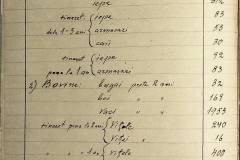 iepe 92
tineret iepe 83
dela 1-3 ani armasari 53
cai 30
tineret iepe 92
pana la 1 an armasari 83
2) Bovine: bugai peste 2 ani 32
boi " 164
Vaci " 1953
tineret pana la 2 ani Vitele 240
Vitei " 16
" " 1 an Vitele 400